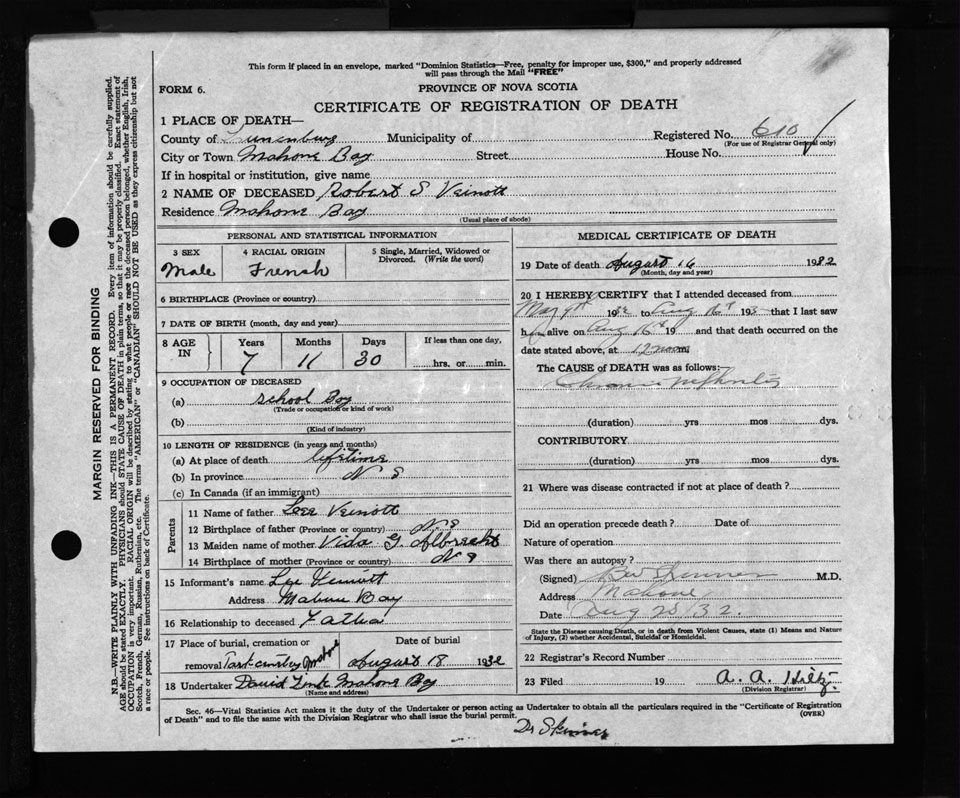 This form if placed in an envelope, marked "Dominion Statistics—Free, penalty for improper use, $300," and properly addressed
will pass through the Mail "FREE"
FORM 6.
PROVINCE OF NOVA SCOTIA
CERTIFICATE OF REGISTRATION OF DEATH
1 PLACE OF DEATH—
County of Lunenburg Municipality of Registered No. 610
(For use of Registrar General only)
City or Town Mahone Bay Street House No.
If in hospital or institution, give name
2 NAME OF DECEASED Robert S Veinott
Residence Mahone Bay
(Usual place of abode)
PERSONAL AND STATISTICAL INFORMATION
3 SEX 4 RACIAL ORIGIN 5 Single, Married, Widowed or
Divorced. (Write the word)
Male French
6 BIRTHPLACE (Province or country)
7 DATE OF BIRTH (month, day and year)
8 AGE IN Years Months Days If less than one day,
7 11 30 hrs. or min.
9 OCCUPATION OF DECEASED
(a) School Boy
(Trade or occupation or kind of work)
(b)
(Kind of industry)
10 LENGTH OF RESIDENCE (in years and months)
(a) At place of death lifetime
(b) In province N S
(c) In Canada (if an immigrant)
Parents
11 Name of father Lee Veinott
12 Birthplace of father (Province or country) N S
13 Maiden name of mother Vida G. Albrecht
14 Birthplace of mother (Province or country) N S
15 Informant's name Lee Veinott
Address Mahone Bay
16 Relationship to deceased Father
17 Place of burial, cremation or Date of burial
removal Park cemetery Mahone August 18 1932
18 Undertaker David Zink Mahone Bay
(Name and address)
MEDICAL CERTIFICATE OF DEATH
19 Date of death August 16 1932
(Month, day and year)
20 I HEREBY CERTIFY that I attended deceased from
May 9th 1932 to Aug 16th 193 that I last saw
h alive on Aug 16th 19 and that death occurred on the
date stated above, at 12 noon m.
The CAUSE of DEATH was as follows:—
Chronic nephritis
(duration) yrs mos dys.
CONTRIBUTORY
(duration) yrs mos dys.
21 Where was disease contracted if not at place of death?
Did an operation precede death? Date of
Nature of operation
Was there an autopsy?
(Signed) Skinner M.D.
Address Mahone
Date Aug 25/32.
State the Disease causing Death, or in death from Violent Causes, state (1) Means and Nature
of Injury, (2) whether Accidental, Suicidal or Homicidal.
22 Registrar's Record Number
23 Filed 19 A. A. Hiltz
(Division Registrar)
Sec. 46—Vital Statistics Act makes it the duty of the Undertaker or person acting as Undertaker to obtain all the particulars required in the "Certificate of Registration
of Death" and to file the same with the Division Registrar who shall issue the burial permit. (OVER)
Dr Skinner
MARGIN RESERVED FOR BINDING
N.B.—WRITE PLAINLY WITH UNFADING INK—THIS IS A PERMANENT RECORD. Every item of information should be carefully supplied.
AGE should be stated EXACTLY. PHYSICIANS should STATE CAUSE OF DEATH in plain terms, so that it may be properly classified. Exact statement of
OCCUPATION is very important. RACIAL ORIGIN will be described by stating to what people or race the deceased person belonged, whether English, Irish,
Scotch, French, German, Russian, Ruthenian, etc. The terms "AMERICAN" or "CANADIAN" SHOULD NOT BE USED as they express citizenship but not
a race or people. See instructions on back of Certificate.